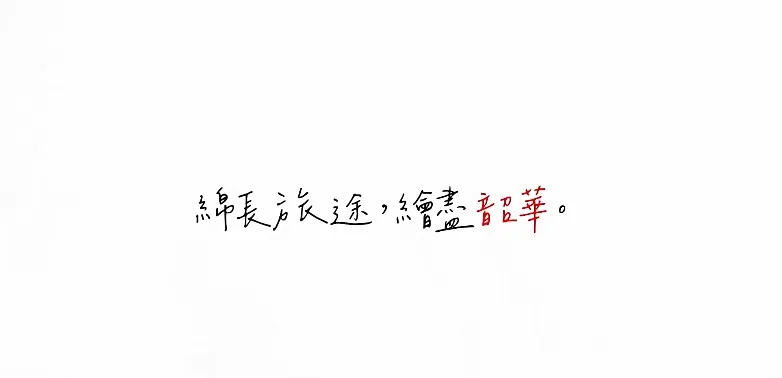 綿長旅途，繪盡韶華。